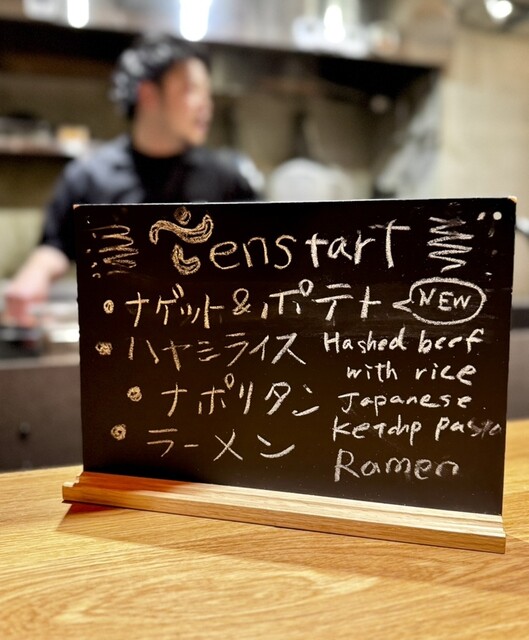 enstart
・ナゲット&ポテト NEW
・ハヤシライス Hashed beef
with rice
・ナポリタン Japanese
Ketchp pasta
・ラーメン Ramen